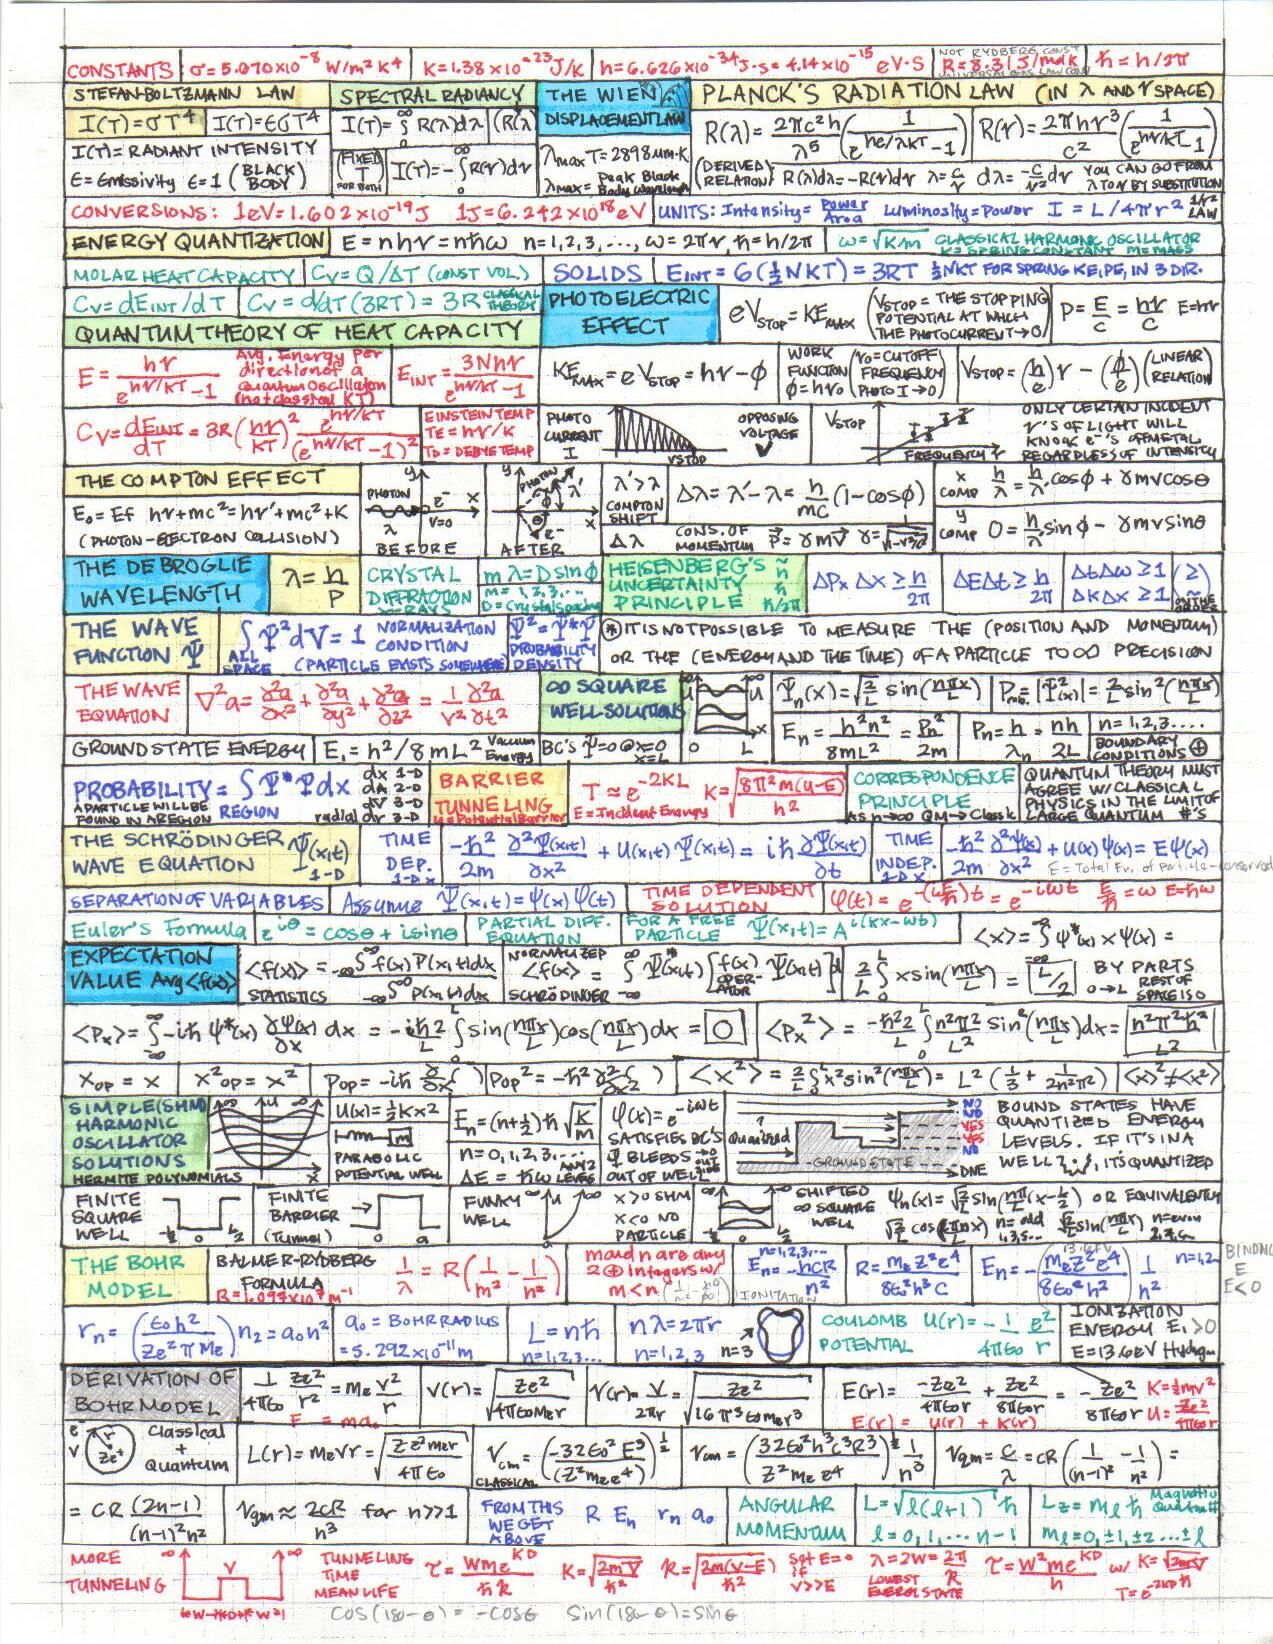 CONSTANTS σ=5.670×10⁻⁸ W/m²K⁴ K=1.38×10⁻²³J/K h=6.626×10⁻³⁴J·s=4.14×10⁻¹⁵ eV·S NOT RYDBERG CONST R=8.31J/molK UNIVERSAL GAS LAW CONST ħ=h/2π
STEFAN-BOLTZMANN LAW SPECTRAL RADIANCY THE WIEN DISPLACEMENT LAW PLANCK'S RADIATION LAW (IN λ AND ν SPACE)
I(T)=σT⁴ I(T)=εσT⁴ I(T)=∫₀^∞ R(λ)dλ (R(λ) R(λ)=2πc²h/λ⁵ (1/(e^(hc/λKT)-1)) R(ν)=2πhν³/c² (1/(e^(hν/KT)-1))
I(T)=RADIANT INTENSITY (FIXED T FOR BOTH) I(T)=-∫₀^∞R(ν)dν λmaxT=2898μm·K
ε=Emissivity ε=1 (BLACK BODY) λmax=Peak Black Body Wavelength (DERIVED RELATION) R(λ)dλ=-R(ν)dν λ=c/ν dλ=-c/ν² dν YOU CAN GO FROM λ TO ν BY SUBSTITUTION
CONVERSIONS: 1eV=1.602×10⁻¹⁹J 1J=6.242×10¹⁸eV UNITS: Intensity=Power/Area Luminosity=Power I=L/4πr² 1/r² LAW
ENERGY QUANTIZATION E=nhν=nħω n=1,2,3,..., ω=2πν, ħ=h/2π ω=√K/m CLASSICAL HARMONIC OSCILLATOR K=SPRING CONSTANT m=MASS
MOLAR HEAT CAPACITY Cv=Q/ΔT (CONST VOL.) SOLIDS EINT=6(½NKT)=3RT ½NKT FOR SPRING KE, PE, IN 3 DIR.
Cv=dEINT/dT Cv=d/dT(3RT)=3R CLASSICAL THEORY PHOTOELECTRIC EFFECT eVSTOP=KEMAX (VSTOP=THE STOPPING POTENTIAL AT WHICH THE PHOTOCURRENT→0) P=E/c=hν/c E=hν
QUANTUM THEORY OF HEAT CAPACITY
E=hν/(e^(hν/KT)-1) Avg. Energy per direction of a Quantum Oscillator (not classical KT) EINT=3Nhν/(e^(hν/KT)-1) KEMAX=eVSTOP=hν-ϕ WORK FUNCTION ϕ=hν₀ (ν₀=CUTOFF FREQUENCY PHOTO I→0) VSTOP=(h/e)ν-(ϕ/e) (LINEAR RELATION)
Cv=dEINT/dT=3R(hν/KT)² e^(hν/KT)/(e^(hν/KT)-1)² EINSTEIN TEMP TE=hν/K TD=DEBYE TEMP PHOTO CURRENT I VSTOP OPPOSING VOLTAGE V VSTOP FREQUENCY ν ONLY CERTAIN INCIDENT ν'S OF LIGHT WILL KNOCK e⁻'S OFF METAL REGARDLESS OF INTENSITY
THE COMPTON EFFECT PHOTON λ e⁻ V=0 x y BEFORE PHOTON λ' ϕ θ e⁻ x y AFTER λ'>λ COMPTON SHIFT Δλ Δλ=λ'-λ=h/mc (1-cosϕ) x COMP h/λ=h/λ' cosϕ+γmvcosθ
E₀=Ef hν+mc²=hν'+mc²+K
(PHOTON-ELECTRON COLLISION) CONS. OF MOMENTUM P=γmv γ=1/√1-v²/c² y COMP 0=h/λ' sinϕ-γmvsinθ
THE DEBROGLIE WAVELENGTH λ=h/P CRYSTAL DIFFRACTION X-RAYS mλ=Dsinϕ m=1,2,3,... D=Crystal Spacing HEISENBERG'S UNCERTAINTY PRINCIPLE ħ h/2π ΔPxΔx≥h/2π ΔEΔt≥h/2π ΔtΔω≥1 ΔKΔx≥1 (≥)
THE WAVE FUNCTION Ψ ∫Ψ²dV=1 ALL SPACE NORMALIZATION CONDITION (PARTICLE EXISTS SOMEWHERE) Ψ²=Ψ*Ψ PROBABILITY DENSITY ⊛IT IS NOT POSSIBLE TO MEASURE THE (POSITION AND MOMENTUM)
OR THE (ENERGY AND THE TIME) OF A PARTICLE TO ∞ PRECISION
THE WAVE EQUATION ∇²a=∂²a/∂x²+∂²a/∂y²+∂²a/∂z²=1/v² ∂²a/∂t² ∞ SQUARE WELL SOLUTIONS ∞ u ∞ u x 0 L Ψn(x)=√2/L sin(nπx/L) Prob.=|Ψ²(x)|=2/L sin²(nπx/L)
GROUND STATE ENERGY E₁=h²/8mL² Vacuum Energy BC'S Ψ=0 @ x=0 x=L En=h²n²/8mL²=Pn²/2m Pn=h/λn=nh/2L n=1,2,3.... BOUNDARY CONDITIONS ⊕
PROBABILITY=∫Ψ*Ψdx dx 1-D dA 2-D dV 3-D radial dr 3-D BARRIER TUNNELING U=Potential Barrier T≈e^(-2KL) K=√8π²m(u-E)/h² CORRESPONDENCE PRINCIPLE QUANTUM THEORY MUST AGREE W/CLASSICAL PHYSICS IN THE LIMIT OF LARGE QUANTUM #'S
A PARTICLE WILL BE FOUND IN A REGION REGION E=Incident Energy AS n→∞ QM→Classic
THE SCHRÖDINGER WAVE EQUATION Ψ(x,t) 1-D TIME DEP. 1-D x -ħ²/2m ∂²Ψ(x,t)/∂x²+U(x,t)Ψ(x,t)=iħ ∂Ψ(x,t)/∂t TIME INDEP. 1-D x -ħ²/2m ∂²ψ(x)/∂x²+u(x)ψ(x)=Eψ(x) E=Total En. of Particle-conserved
SEPARATION OF VARIABLES Assume Ψ(x,t)=ψ(x)φ(t) TIME DEPENDENT SOLUTION φ(t)=e^(-(iE/ħ)t)=e^(-iωt) E/ħ=ω E=ħω
Euler's Formula e^(iθ)=cosθ+isinθ PARTIAL DIFF. EQUATION FOR A FREE PARTICLE Ψ(x,t)=Ae^(i(kx-ωt)) <x>=∫ψ*(x)xψ(x)=
EXPECTATION VALUE Avg <f(x)> <f(x)>=∫f(x)P(x,t)dx/∫P(x,t)dx STATISTICS NORMALIZED <f(x)>=∫Ψ*(x,t)[f(x) OPERATOR Ψ(x,t)]d SCHRÖDINGER 2/L∫xsin(nπx/L)=[L/2] BY PARTS 0→L REST OF SPACE IS 0
<Px>=∫-iħψ*(x)∂ψ(x)/∂x dx=-iħ2/L∫sin(nπx/L)cos(nπx/L)dx=[0] <Px²>=-ħ²2/L∫n²π²/L² sin²(nπx/L)dx=[n²π²ħ²/L²]
Xop=x x²op=x² Pop=-iħ∂/∂x( ) Pop²=-ħ²∂²/∂x²( ) <x²>=2/L∫x²sin²(nπx/L)=L²(1/3+1/2n²π²) <x>²≠<x²>
SIMPLE (SHM) HARMONIC OSCILLATOR SOLUTIONS HERMITE POLYNOMIALS ∞ u ∞ x U(x)=½Kx² m PARABOLIC POTENTIAL WELL En=(n+½)ħ√K/m n=0,1,2,3,... ΔE=ħω ANY 2 LEVELS φ(t)=e^(-iωt) SATISFIES BC'S ψ BLEEDS→0 OUT OF WELL ? Quantized GROUND STATE NO NO YES YES NO DNE BOUND STATES HAVE QUANTIZED ENERGY LEVELS. IF IT'S IN A WELL, IT'S QUANTIZED
FINITE SQUARE WELL -L/2 L/2 FINITE BARRIER→ (Tunnel) 0 a FUNKY WELL ∞ u ∞ 0 x>0 SHM x<0 NO PARTICLE -L/2 L/2 SHIFTED ∞ SQUARE WELL ψn(x)=√2/L sin(nπ/L(x-L/2)) OR EQUIVALENTLY
√2/L cos(nπx/L) n=odd 1,3,5... √2/L sin(nπx/L) n=even 2,4,6
THE BOHR MODEL BALMER-RYDBERG FORMULA R=1.097×10⁷m⁻¹ 1/λ=R(1/m²-1/n²) m and n are any 2 ⊕ integers w/ m<n IONIZATION n=1,2,3... En=-hcR/n² R=meZ²e⁴/8ε₀²h³c En=-(meZ²e⁴/8ε₀²h²)1/n² 13.6eV n=1,2 BINDING E E<0
rn=(ε₀h²/Ze²πme)n²=a₀n² a₀=BOHR RADIUS =5.292×10⁻¹¹m L=nħ n=1,2,3... nλ=2πr n=1,2,3 n=3 COULOMB POTENTIAL U(r)=-1/4πε₀ e²/r IONIZATION ENERGY E₁>0 E=13.6eV Hydrogen
DERIVATION OF BOHR MODEL 1/4πε₀ Ze²/r²=me v²/r F=ma V(r)=√Ze²/4πε₀mer ν(r)=V/2πr=√Ze²/16π³ε₀mer³ E(r)=-Ze²/4πε₀r+Ze²/8πε₀r=-Ze²/8πε₀r K=½mv² U=Ze²/4πε₀r
E(r)=U(r)+K(r)
e⁻ V r Ze⁺ Classical + Quantum L(r)=meVr=√Ze²mer/4πε₀ νcm=(-32ε₀²E³/(Z²mee⁴))^½ CLASSICAL νcm=(32ε₀²h³c³R³/Z²mee⁴)^½ 1/n³ νqm=c/λ=CR(1/(n-1)²-1/n²)=
=CR(2n-1)/(n-1)²n² νqm≈2CR/n³ for n>>1 FROM THIS WE GET ABOVE R En rn a₀ ANGULAR MOMENTUM L=√l(l+1) ħ l=0,1,...n-1 Lz=mlħ Magnetic Quantum # ml=0,±1,±2...±l
MORE TUNNELING ∞ V ∞ TUNNELING TIME MEAN LIFE τ=Wme^(KD)/ħk K=√2mV/ħ² k=√2m(V-E)/ħ² Set E=0 if V>>E λ=2W=2π/k LOWEST ENERGY STATE τ=W²me^(KD)/h w/ K=√2mV/ħ T=e^(-2KD)
cos(180-θ)=-cosθ sin(180-θ)=sinθ